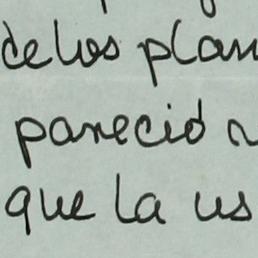 de los plan
pareció
que la us